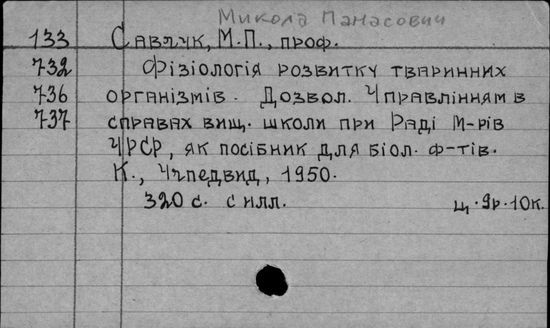 Микола Панасович
133 Савчук, М.П., проф.
732 Фізіологія розвитку тваринних
736 організмів. Дозвол. Управлінням в
737 справах вищ. школи при Раді М-рів
УРСР, як посібник для біол. ф-тів.
К., Учпедвид, 1950.
320 с. с илл. ц. 9р. 10к.